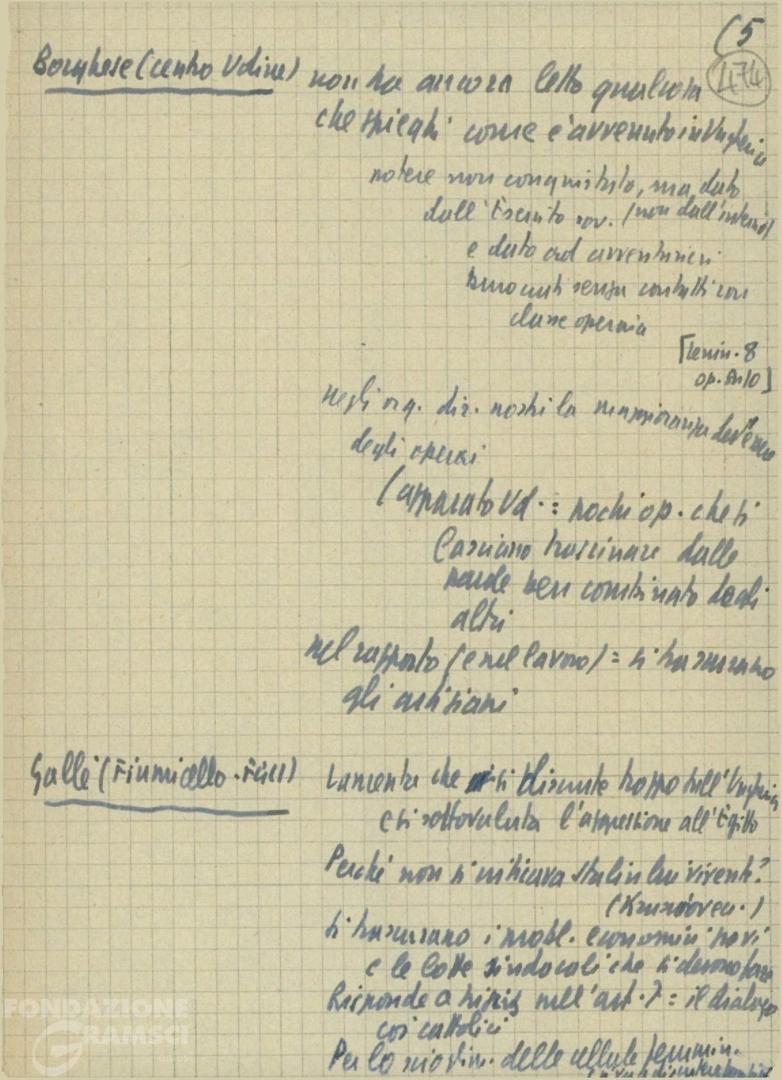 (5
474
Borghese (centro Udine) non ha ancora letto qualcosa
che spieghi come è avvenuto in Ungheria
potere non conquistato, ma dato
dall'Esercito sov. (non dall'interno)
e dato ad avventurieri
burocrati senza contatti con
classe operaia
[Lenin. 8
op.
negli org. dir. nostri la maggioranza dev'essere
degli operai
(apparato Ud. = pochi op. che si
lasciano trascinare dalle
parole ben combinate degli
altri
nel rapporto (e nel lavoro) = si trascurano
gli artigiani
Gallé (Fiumicello. lamenta che si discute troppo sull'Ungheria
e si sottovaluta l'aggressione all'Egitto
Perché non si criticava Stalin lui vivente?
si trascurano i probl. economici
e le lotte sindacali che si devono fare
Risponde a nell'art. 7 = il dialogo
coi cattolici
Per lo delle cellule femmin.
FONDAZIONE
GRAMSCI